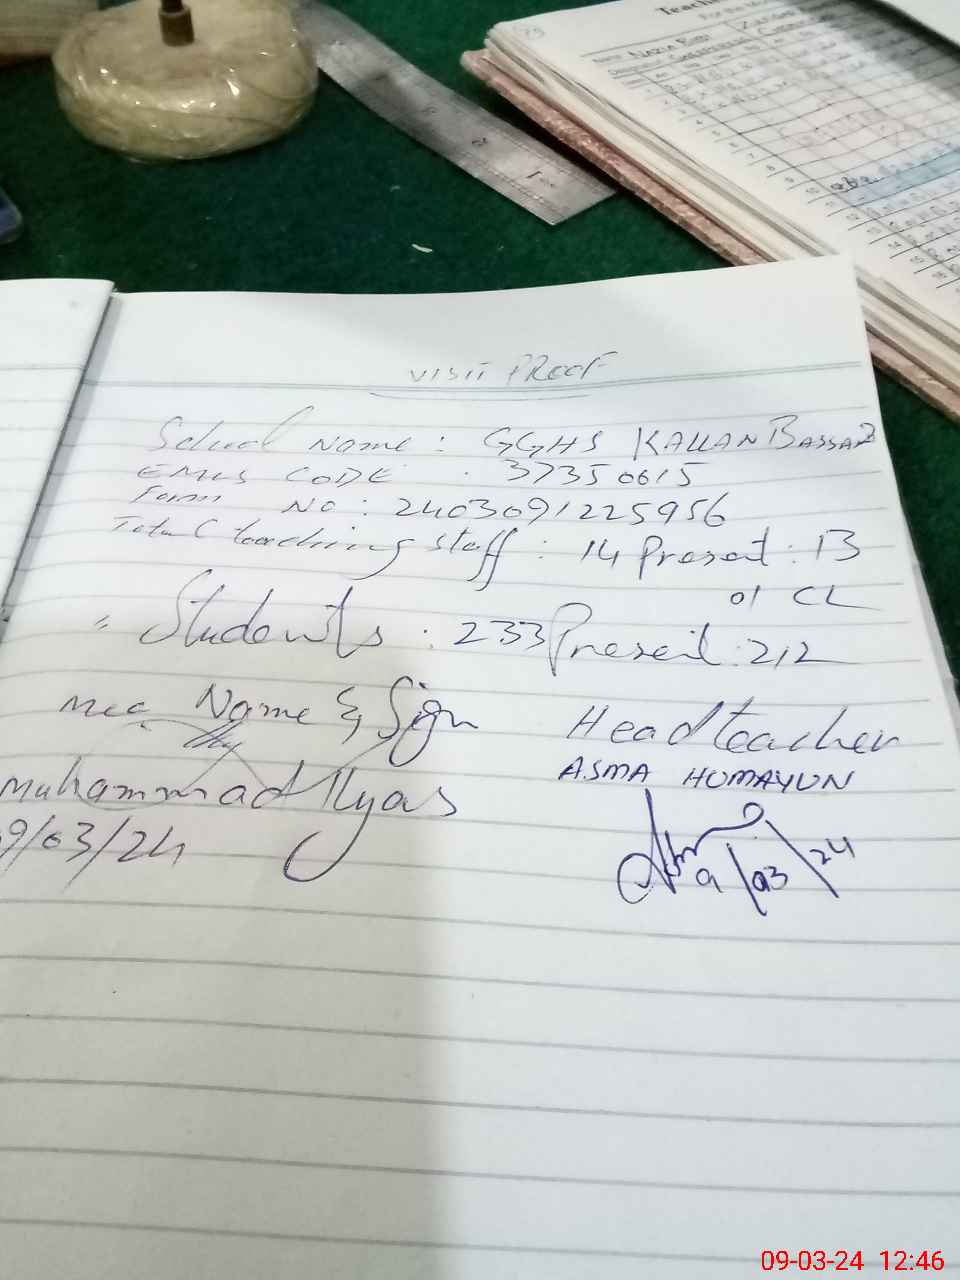 Teache
For the Mo
Name: Nazia Bibi
VISIT PROOF
School Name : GGHS KALLAN BASSAND
EMIS CODE : 37350615
Form No : 2403091225956
Total teaching staff : 14 Present : 13
01 CL
" Students : 233 Present : 212
MEA Name & Sign
Headteacher
Muhammad Ilyas
ASMA HUMAYUN
9/03/24
9/03/24
09-03-24 12:46